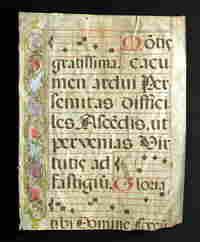 Mōtē
gratissima. cacu
men ardui Per
semitas diffici
les. Ascēdis, ut
pervenias Vir
tutis ad
fastigiū. Gloria
tibi Domine